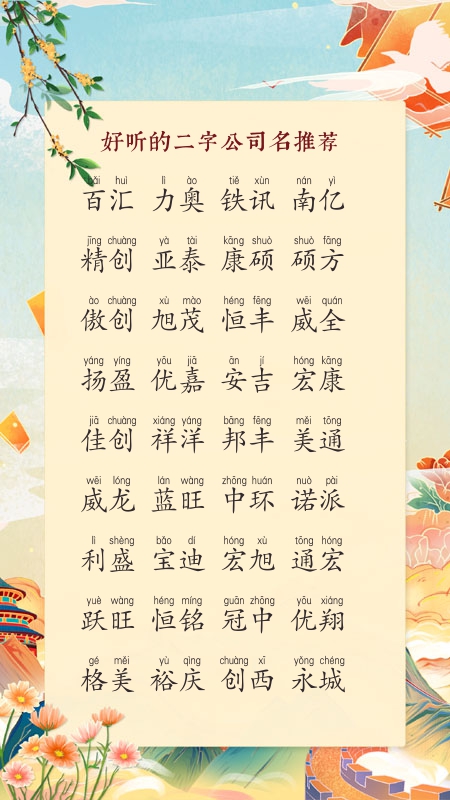 好听的二字公司名推荐
bǎi huì lì ào tiě xùn nán yì
百汇 力奥 铁讯 南亿
jīng chuàng yà tài kāng shuò shuò fāng
精创 亚泰 康硕 硕方
ào chuàng xù mào héng fēng wēi quán
傲创 旭茂 恒丰 威全
yáng yíng yōu jiā ān jí hóng kāng
扬盈 优嘉 安吉 宏康
jiā chuàng xiáng yáng bāng fēng měi tōng
佳创 祥洋 邦丰 美通
wēi lóng lán wàng zhōng huán nuò pài
威龙 蓝旺 中环 诺派
lì shèng bǎo dí hóng xù tōng hóng
利盛 宝迪 宏旭 通宏
yuè wàng héng míng guān zhōng yōu xiáng
跃旺 恒铭 冠中 优翔
gé měi yù qìng chuàng xī yǒng chéng
格美 裕庆 创西 永城